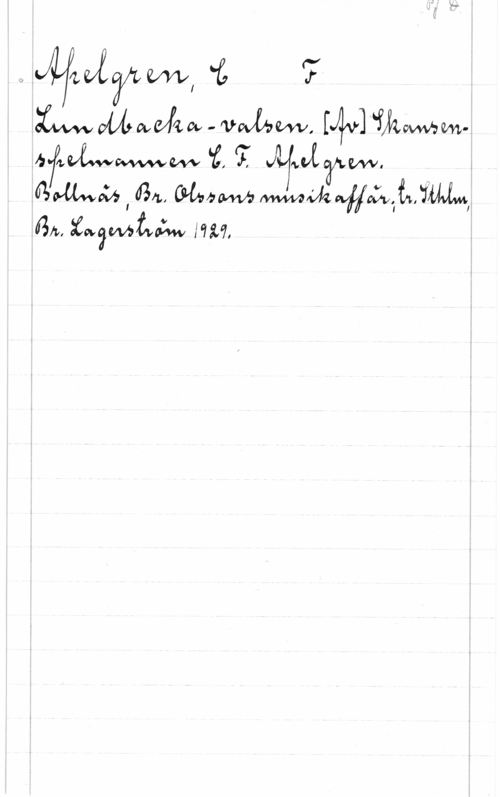 Apelgren, C F
Lundbacka-valsen. [Av] Skansen-
spelmannen C. F. Apelgren.
Bollnäs, Br. Olssons musikaffär, tr. Sthlm,
Br. Lagerström 1929.